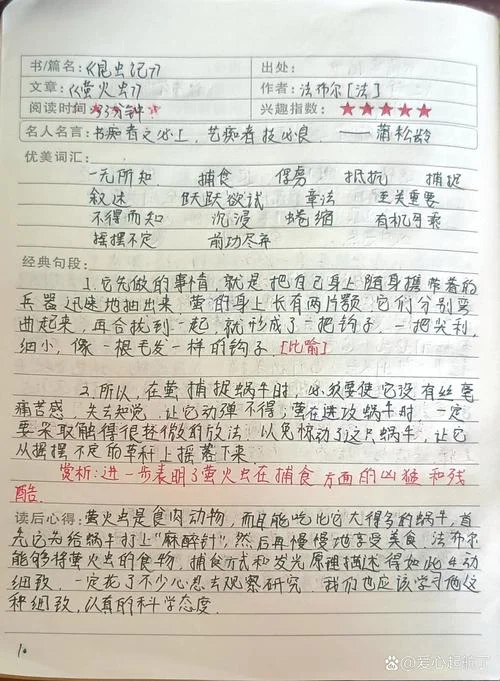 书/篇名：《昆虫记》 出处：
文章：《萤火虫》 作者：法布尔[法]
阅读时间：33分钟 兴趣指数：★★★★★
名人名言：书痴者文必工，艺痴者技必良。——蒲松龄
优美词汇：
一无所知 捕食 俘虏 抵抗 捕捉
叙述 跃跃欲试 章法 至关重要
不得而知 沉浸 蜷缩 有机可乘
摇摆不定 前功尽弃
经典句段：
1.它先做的事情，就是把自己身上随身携带着的
兵器迅速地抽出来，萤的身上长有两片颚，它们分别弯
曲起来，再合拢到一起，就形成了一把钩子，一把尖利，
细小，像一根毛发一样的钩子。[比喻]
2.所以，在萤捕捉蜗牛时，必须要使它没有丝毫
痛苦感，失去知觉，让它动弹不得；萤在进攻蜗牛时，一定
要采取触得很轻微的放法，以免惊动了这只蜗牛，让它
从摇摆不定的草秆上摇落下来
赏析：进一步表明了萤火虫在捕食方面的凶猛和残
酷.
读后心得：萤火虫是食肉动物，而且能吃比它大得多的蜗牛，首
先它为给蜗牛打上"麻醉针"，然后再慢慢地享受美食，法布尔
能够将萤火虫的食物，捕食方式和发光原理描述得如此生动
细致，一定花了不少心思去观察研究，我们也应该学习他这
种细致，认真的科学态度.
10
爱心起航丁